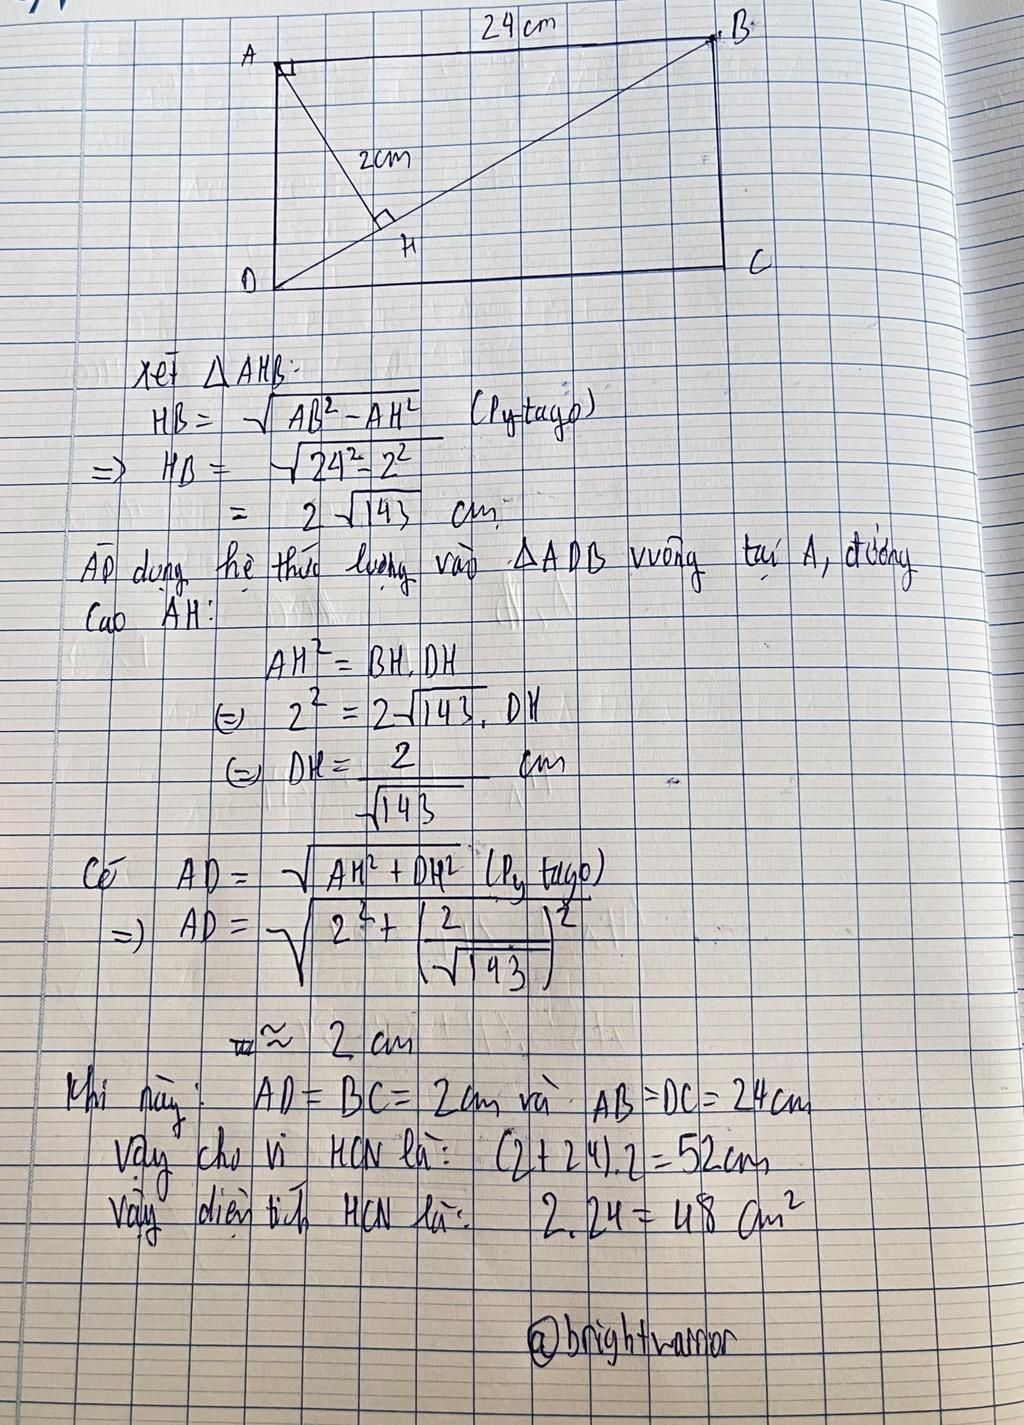 24cm
A
B
2cm
H
D
C
xét Δ AHB:
HB = √(AB² - AH²) (Pytago)
=> HB = √(24² - 2²)
= 2√143 cm
Áp dụng hệ thức lượng vào ΔADB vuông tại A, đường
cao AH:
AH² = BH. DH
⇔ 2² = 2√143. DH
⇔ DH = 2/√143 cm
Có AD = √(AH² + DH²) (Pytago)
=> AD = √(2² + (2/√143)²)
≈ 2 cm
Khi này: AD = BC = 2cm và AB = DC = 24cm
Vậy chu vi HCN là: (2+24).2 = 52cm
Vậy diện tích HCN là: 2.24 = 48 cm²
@brightwarrior